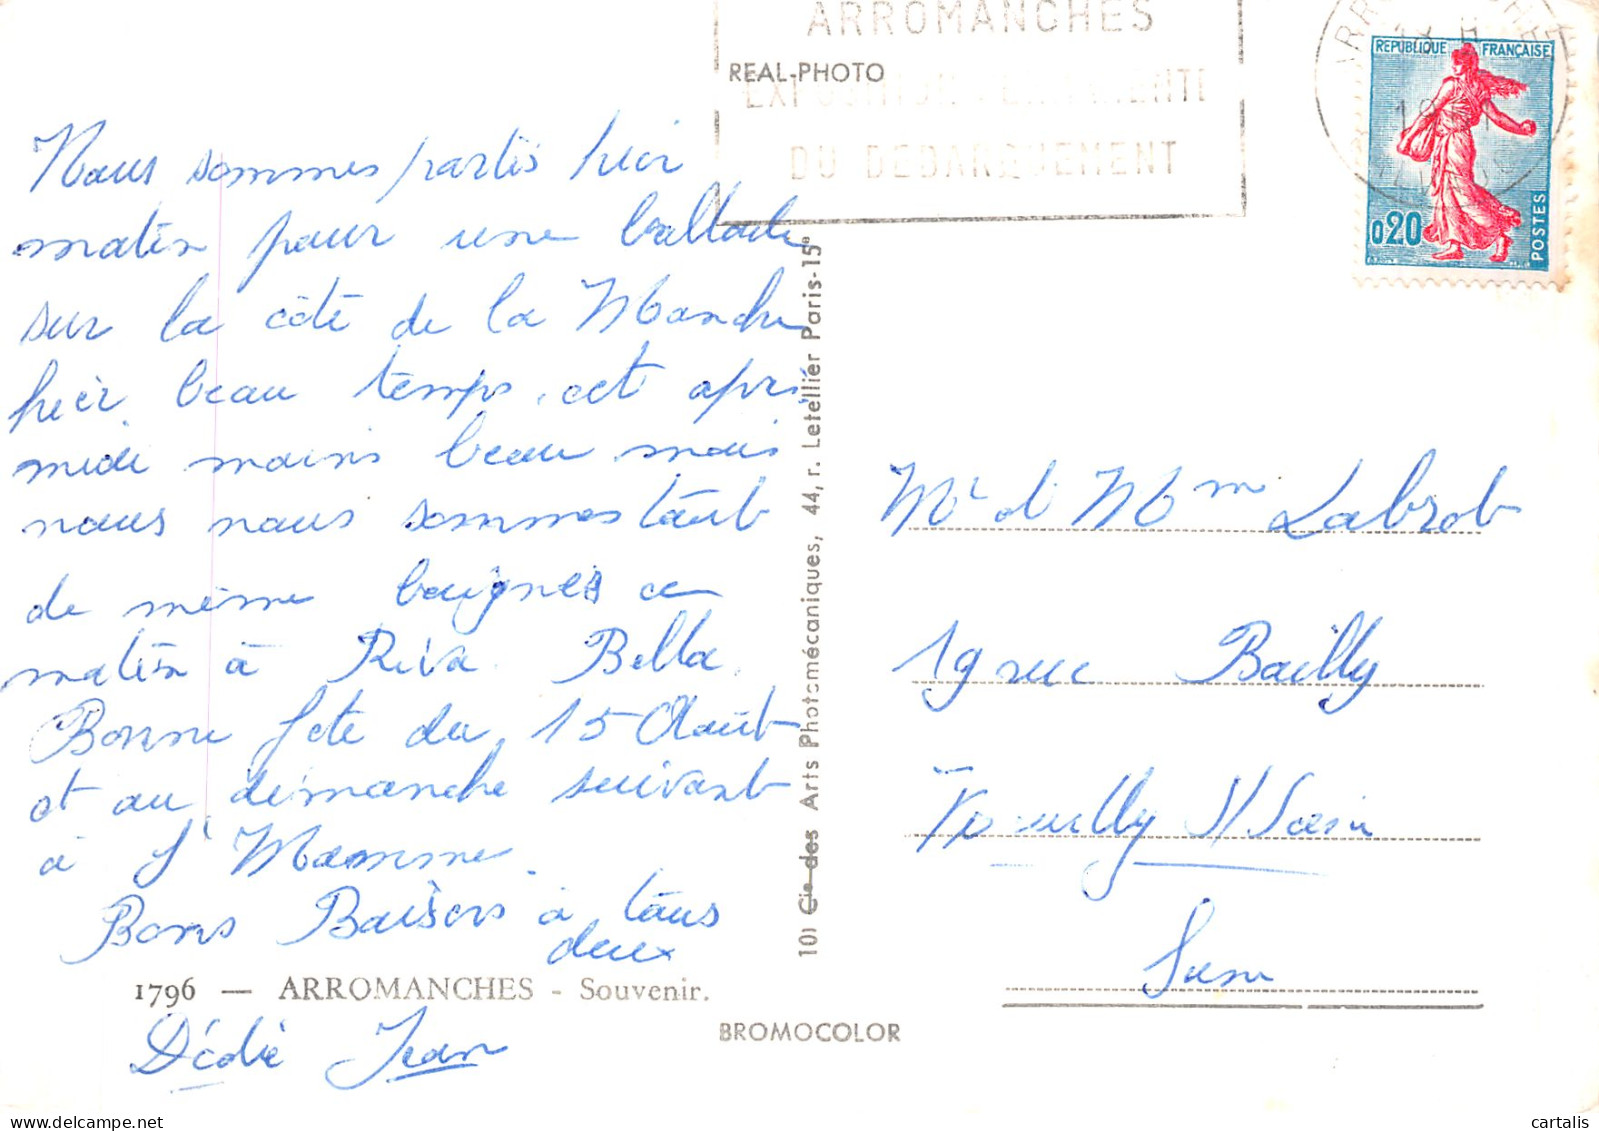 ARROMANCHES
REAL-PHOTO
DU DEBARQUEMENT
REPUBLIQUE FRANÇAISE
0,20
POSTES
Nous sommes partis hier
matin pour une ballade
sur la côté de la Manche
hier beau temps, cet après
midi moins beau mais
nous nous sommes tout
de même baignés ce
matin à Riva Bella.
Bonne fete du 15 Août
et au dimanche suivant
à St Mamme.
Bons Baisers à tous
deux
1796 — ARROMANCHES - Souvenir.
Dédé Jean
BROMOCOLOR
10) Cie des Arts Photomécaniques, 44, r. Letellier Paris-15e
Mr et Mme
19 rue Bailly
S/ Seine
cartalis
delcampe.net